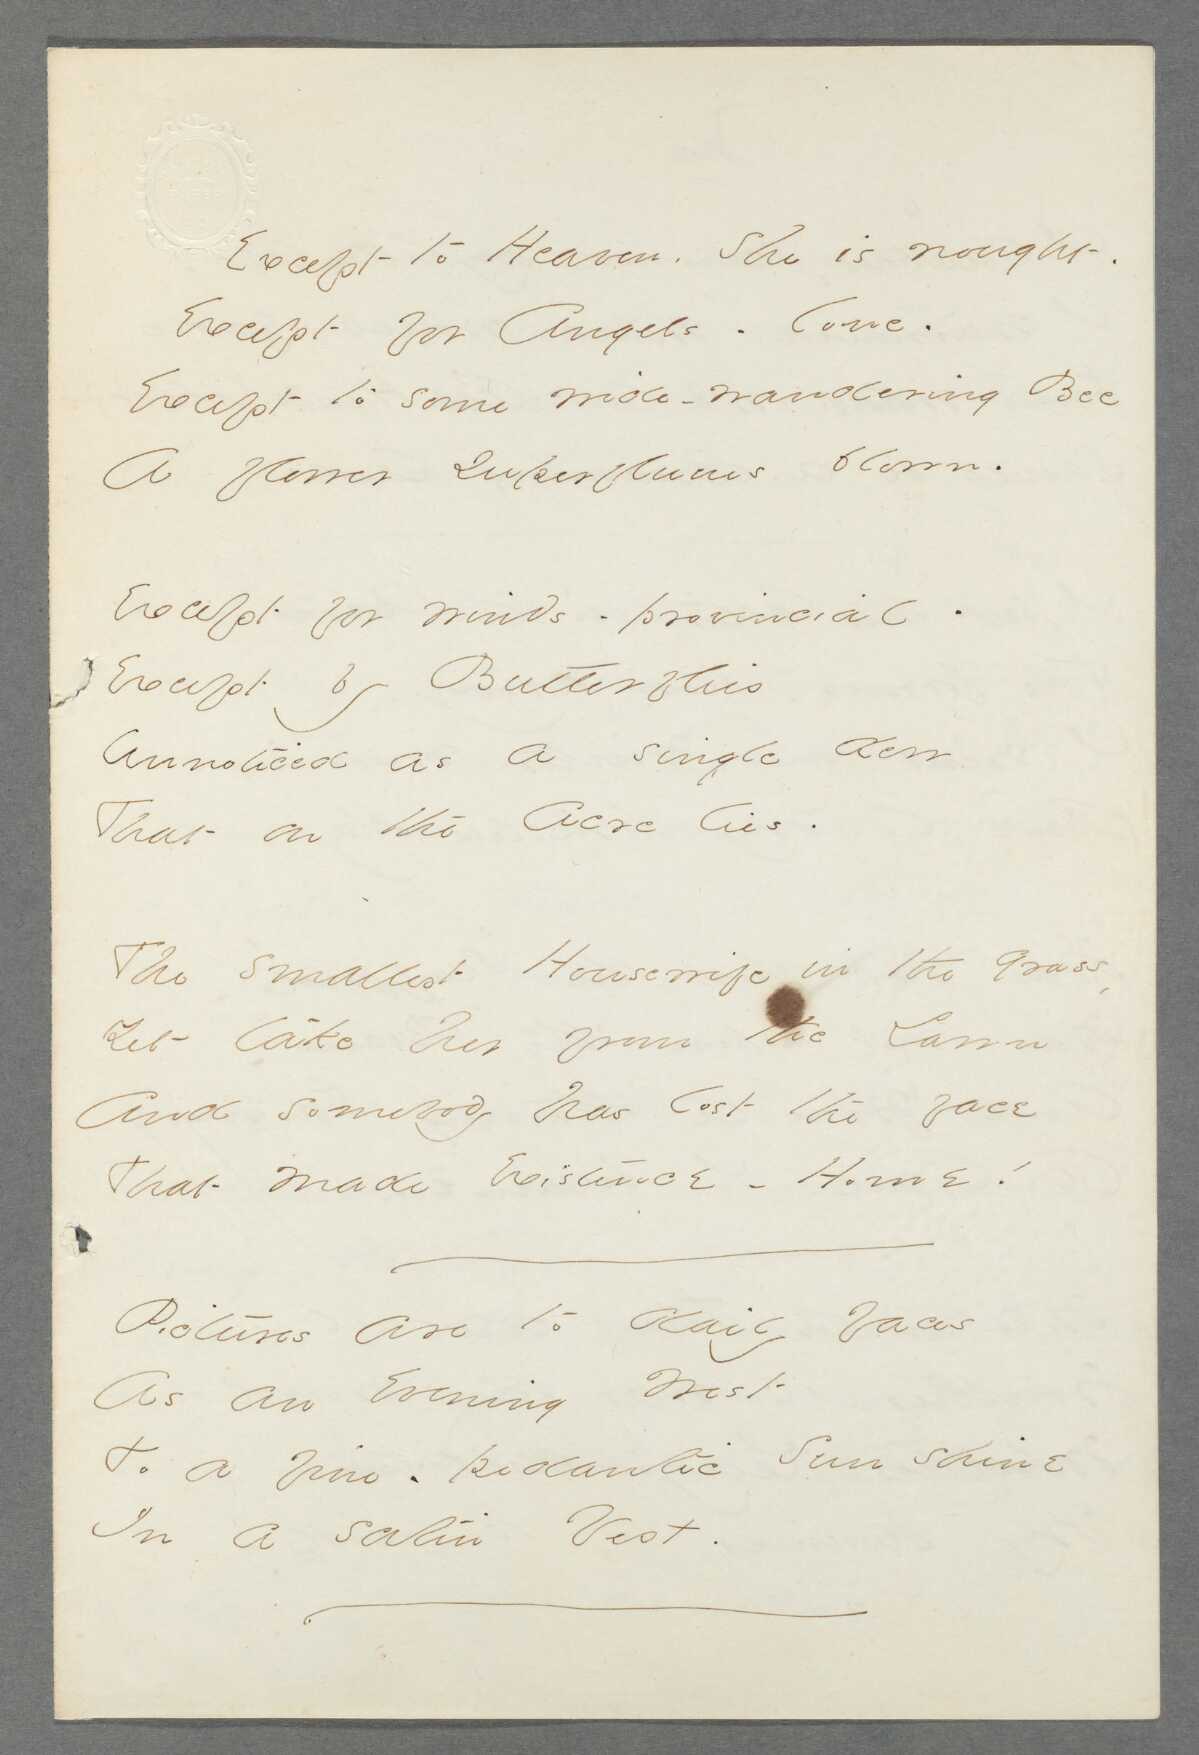 Except to Heaven. She is nought.
Except for Angels. Lone.
Except to some wide-wandering Bee
A flower superfluous blown.
Except for winds. provincial.
Except by Butterflies
Unnoticed as a single dew
That on the Acre lies.
The smallest Housewife in the grass,
Yet take her from the Lawn
And somebody has lost the face
That made Existence - Home!
Pictures are to daily faces
As an Evening West
To a fine. pedantic Sunshine
In a satin Vest.